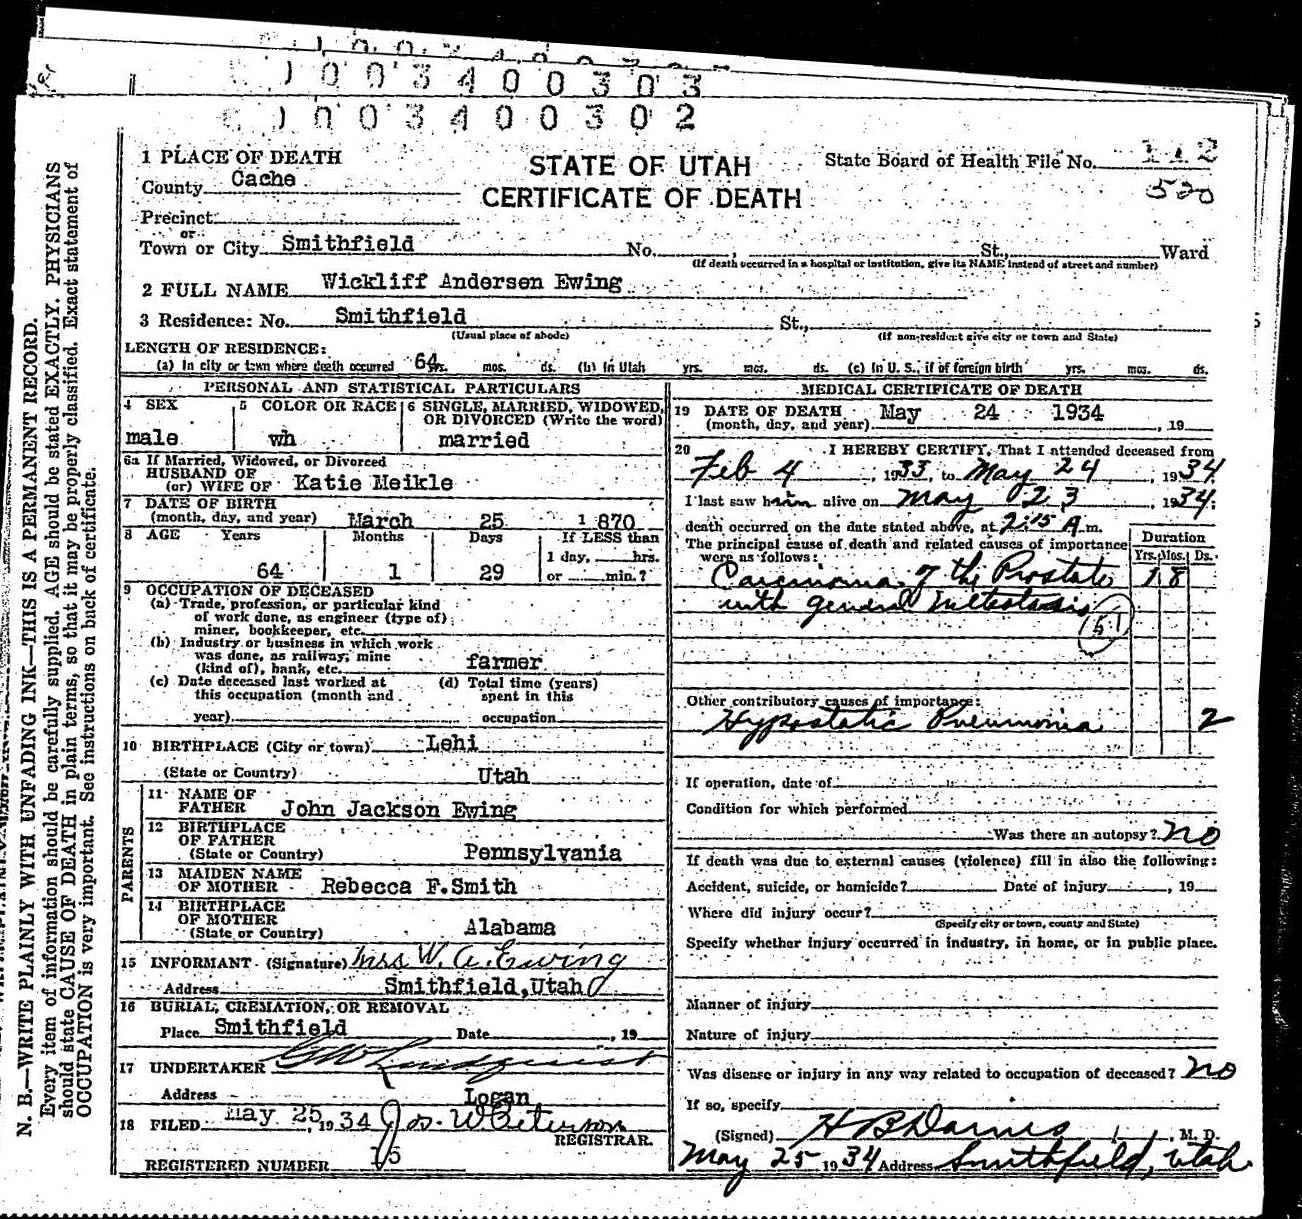 0 0 3 4 0 0 3 0 3
0 0 3 4 0 0 3 0 2
N. B.—WRITE PLAINLY WITH UNFADING INK—THIS IS A PERMANENT RECORD.
Every item of information should be carefully supplied. AGE should be stated EXACTLY. PHYSICIANS
should state CAUSE OF DEATH in plain terms, so that it may be properly classified. Exact statement of
OCCUPATION is very important. See instructions on back of certificate.
STATE OF UTAH
CERTIFICATE OF DEATH
State Board of Health File No. 112
520
1 PLACE OF DEATH
County Cache
Precinct
or
Town or City Smithfield No. , St., Ward
(If death occurred in a hospital or institution, give its NAME instead of street and number)
2 FULL NAME Wickliff Andersen Ewing
3 Residence: No. Smithfield St.,
(Usual place of abode) (If non-resident give city or town and State)
LENGTH OF RESIDENCE:
(a) In city or town where death occurred 64 yrs. mos. ds. (b) In Utah yrs. mos. ds. (c) In U. S., if of foreign birth yrs. mos. ds.
PERSONAL AND STATISTICAL PARTICULARS
4 SEX 5 COLOR OR RACE 6 SINGLE, MARRIED, WIDOWED,
OR DIVORCED (Write the word)
male wh married
6a If Married, Widowed, or Divorced
HUSBAND OF
(or) WIFE OF Katie Meikle
7 DATE OF BIRTH
(month, day, and year) March 25 1870
8 AGE Years Months Days If LESS than
1 day, hrs.
64 1 29 or min.?
9 OCCUPATION OF DECEASED
(a) Trade, profession, or particular kind
of work done, as engineer (type of)
miner, bookkeeper, etc.
(b) Industry or business in which work
was done, as railway, mine
(kind of), bank, etc. farmer
(c) Date deceased last worked at (d) Total time (years)
this occupation (month and spent in this
year) occupation
10 BIRTHPLACE (City or town) Lehi
(State or Country) Utah
PARENTS
11 NAME OF
FATHER John Jackson Ewing
12 BIRTHPLACE
OF FATHER
(State or Country) Pennsylvania
13 MAIDEN NAME
OF MOTHER Rebecca F.Smith
14 BIRTHPLACE
OF MOTHER
(State or Country) Alabama
15 INFORMANT (Signature) Mrs W. A. Ewing
Address Smithfield,Utah
16 BURIAL, CREMATION, OR REMOVAL
Place Smithfield Date , 19
17 UNDERTAKER G W Lindquist
Address Logan
18 FILED May 25, 1934 Jos. W Peterson
REGISTRAR.
REGISTERED NUMBER 15
MEDICAL CERTIFICATE OF DEATH
19 DATE OF DEATH May 24 1934
(month, day, and year) , 19
20 I HEREBY CERTIFY, That I attended deceased from
Feb 4, 1933, to May 24, 1934
I last saw him alive on May 23, 1934.
death occurred on the date stated above, at 2:15 A m.
The principal cause of death and related causes of importance Duration
were as follows: Yrs. Mos. Ds.
Carcinoma of the Prostate 1 8
with general metastasis
(51)
Other contributory causes of importance:
Hypostatic Pneumonia 2
If operation, date of
Condition for which performed
Was there an autopsy? no
If death was due to external causes (violence) fill in also the following:
Accident, suicide, or homicide? Date of injury , 19
Where did injury occur?
(Specify city or town, county and State)
Specify whether injury occurred in industry, in home, or in public place.
Manner of injury
Nature of injury
Was disease or injury in any way related to occupation of deceased? no
If so, specify
(Signed) , M. D.
May 25 1934 Address Smithfield, Utah